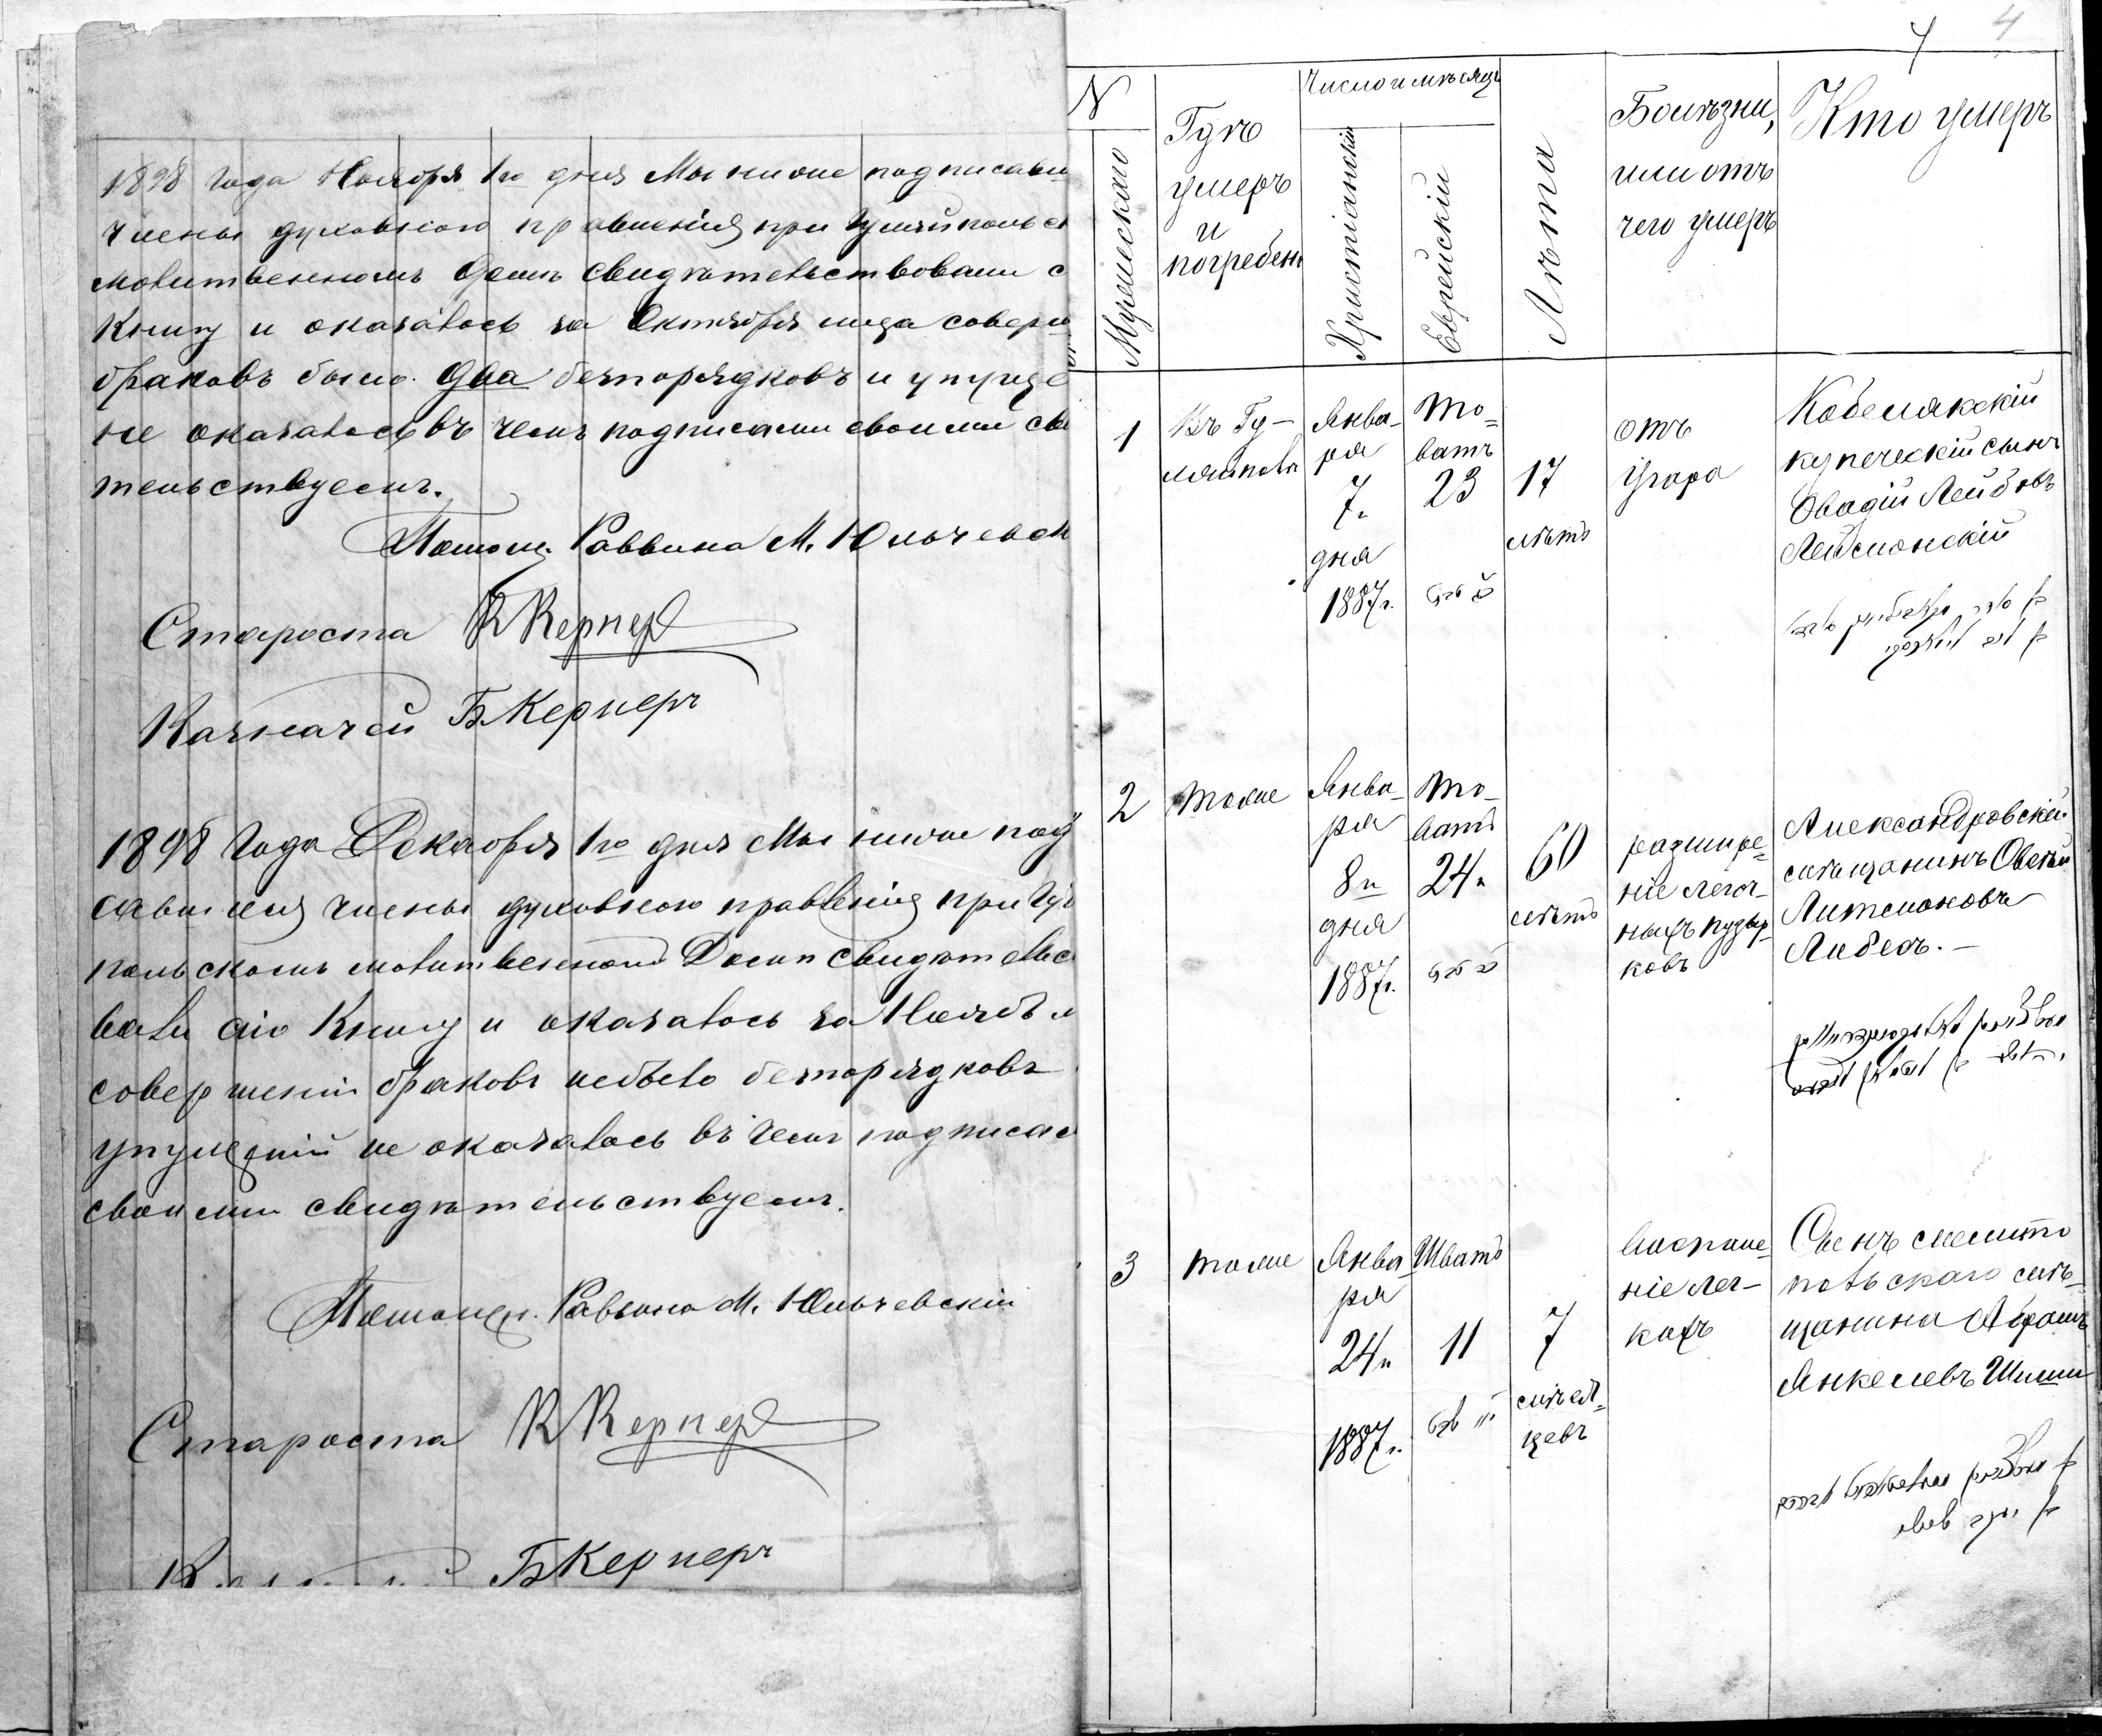 1898 Года Ноября 1го дня Мы ниже подписавш
члены духовного правления при Гуляйпольск
молитвенномъ Доме свидѣтельствовали с
Книгу и оказалось за Октября мца соверш
браковъ было. Два безпорядковъ и упуще
не оказалось въ чемъ подписями своими сви
тельствуемъ.
Помощ. Раввина М. Юльчевск
Староста К Кернер
Казначей Б. Кернеръ
1898 Года Декабря 1го дня Мы ниже под
савшиеся члены духовного правленія при Гуля
польскомъ молитвенномъ Доме свидѣтельс
вали сию Книгу и оказалось за Нояб. м
совершеній браковъ небыло безпорядковъ
упущеній не оказалось въ чемъ подписям
своими свидѣтельствуемъ.
Помощн. Раввина М. Юльчевскій
Староста К Кернер
Б Кернеръ
4
N
Мужескаго
Гдѣ
умеръ
и
погребенъ
Число и мѣсяцъ
Христіанскій
Еврейскій
Лѣта
Болѣзни,
или отъ
чего умеръ
Кто умеръ
1
Въ Гу-
ляйполѣ
Янва-
ря
7.
дня
1887г.
То-
ватъ
23
17
лѣтъ
отъ
Угара
Кобелякскій
купеческій сынъ
Овадій Лейбовъ
2
тоже
Янва-
ря
8го
дня
1887г.
То-
ватъ
24.
60
лѣтъ
расшире-
ніе легоч-
ныхъ пузыр-
ковъ
Александровскій
мѣщанинъ
3
тоже
Янва-
ря
24го
1887г.
Шватъ
11
7
мѣся-
цевъ
Воспале-
ніе лег-
кихъ
Сынъ мелито
польскаго мѣ-
щанина Абрамъ
Янкелевъ